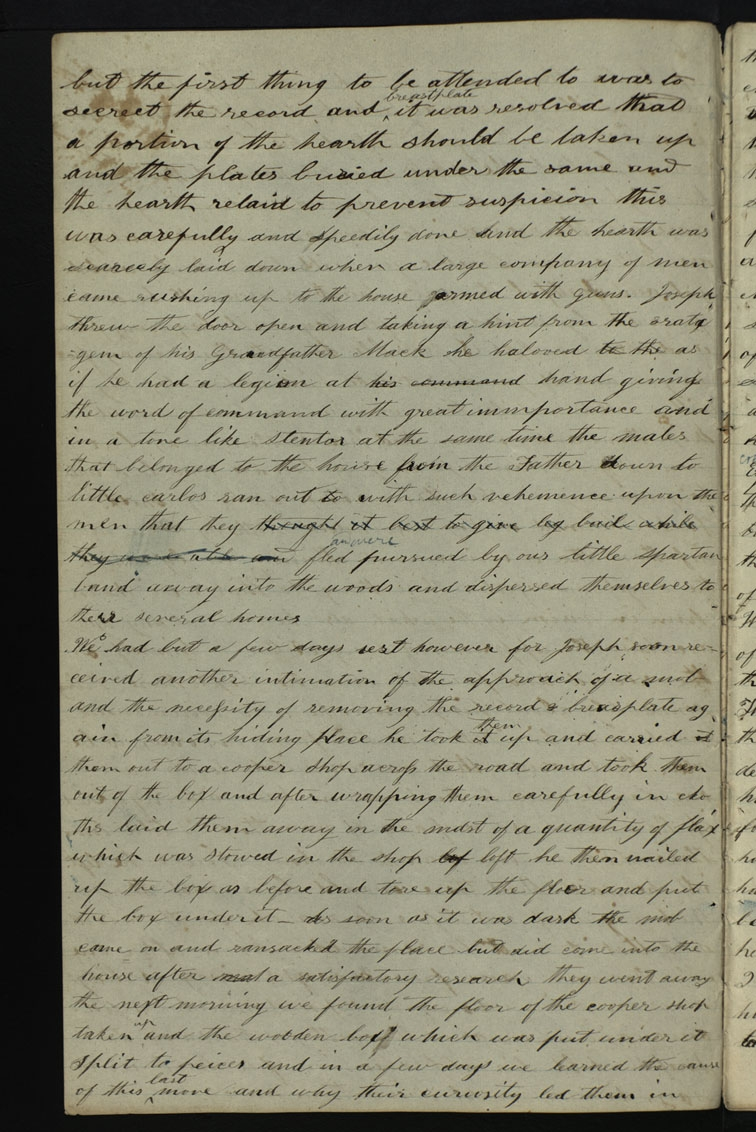 but the first thing to be attended to was to
secreet the record and breastplate it was resolved that
a portion of the hearth should be taken up
and the plates buried under the same and
the hearth relaid to prevent suspicion this
was carefully and speedily done and the hearth was
scarcely laid down when a large company of men
came rushing up to the house armed with guns. Joseph
threw the door open and taking a hint from the strata
=gem of his Grandfather Mack he halooed to the as
if he had a legion at his command hand giving
the word of command with great immportance and
in a tone like stentor at the same time the males
that belonged to the house from the Father down to
little carlos ran out to with such vehemence upon the
men that they thought it best to give leg bail while
they fled pursued by our little spartan
band away into the woods and dispersed themselves to
their several homes
We had but a few days rest however for Joseph soon re=
ceived another intimation of the approach of a mob
and the necessity of removing the record & breasplate ag
ain from its hiding place he took it them up and carried it
them out to a cooper shop across the road and took them
out of the box and after wrapping them carefully in clo
ths laid them away in the midst of a quantity of flax
which was stowed in the shop lof loft he then nailed
up the box as before and tore up the floor and put
the box under it— As soon as it was dark the mob
came on and ransacked the place but did come into the
house after a satisfactory research they went away
the next morning we found the floor of the cooper shop
taken up and the wooden box which was put under it
split to peices and in a few days we learned the cause
of this last move and why their curiosity led them in